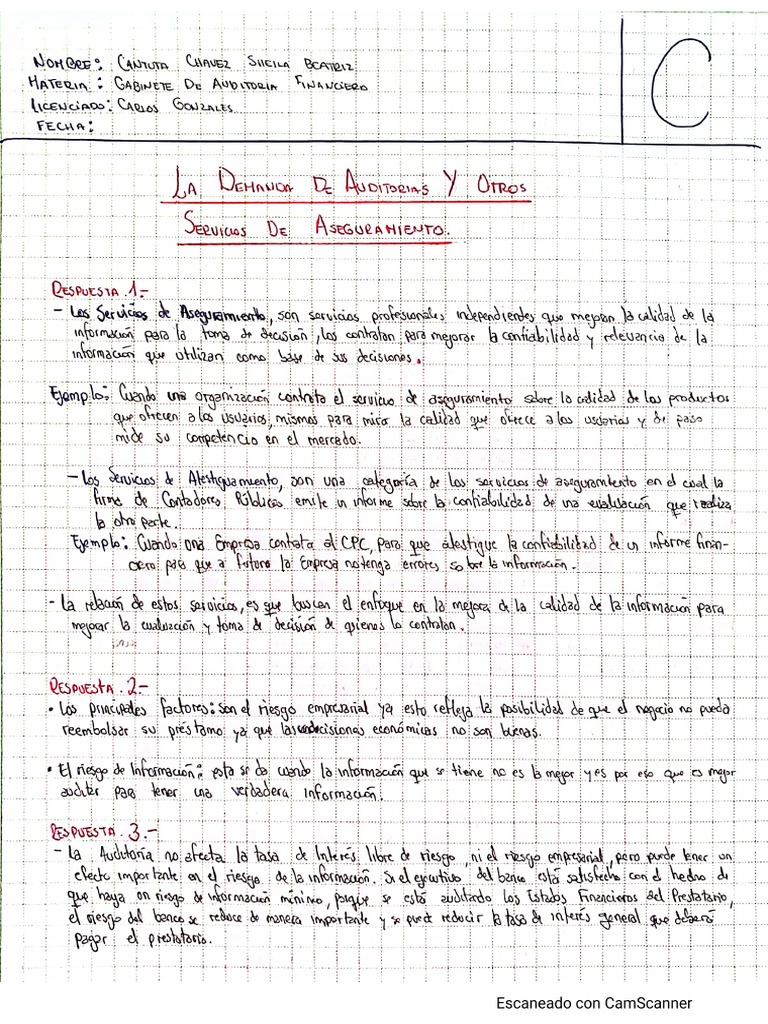 NOMBRE: CANTUTA CHAVEZ SHEILA BEATRIZ
MATERIA: GABINETE DE AUDITORIA FINANCIERO
LICENCIADO: CARLOS GONZALES
FECHA:
C
LA DEMANDA DE AUDITORIAS Y OTROS
SERVICIOS DE ASEGURAMIENTO.
RESPUESTA.1.-
- Los Servicios de Aseguramiento, son servicios profesionales independientes que mejoran la calidad de la
información para la toma de decisión, los contratan para mejorar la confiabilidad y relevancia de la
información que utilizan como base de sus decisiones.
Ejemplo: Cuando una organización contrata el servicio de aseguramiento sobre la calidad de los productos
que ofrecen a los usuarios, mismos para mirar la calidad que ofrece a los usuarios y de paso
mide su competencia en el mercado.
- Los Servicios de Atestiguamiento, son una categoría de los servicios de aseguramiento en el cual la
firma de Contadores Públicos emite un informe sobre la confiabilidad de una evaluación que realiza
la otra parte.
Ejemplo: Cuando una Empresa contrata al CPC, para que atestigue la confiabilidad de un informe finan-
ciero para que a futuro la Empresa no tenga errores sobre la información.
- La relación de estos servicios, es que buscan el enfoque en la mejora de la calidad de la información para
mejorar la evaluación y toma de decisión de quienes lo contratan.
RESPUESTA.2.-
• Los principales factores: son el riesgo empresarial ya esto refleja la posibilidad de que el negocio no pueda
reembolsar su préstamo ya que las decisiones económicas no son buenas.
• El riesgo de Información: esta se da cuando la información que se tiene no es la mejor y es por eso que es mejor
auditar para tener una verdadera información.
RESPUESTA.3.-
- La Auditoría no afecta la tasa de Interés libre de riesgo, ni el riesgo empresarial, pero puede tener un
efecto importante en el riesgo de la información. Si el ejecutivo del banco está satisfecho con el hecho de
que haya un riesgo de información mínimo, porque se está auditando los Estados Financieros del Prestatario,
el riesgo del banco se reduce de manera importante y se puede reducir la tasa de interés general que deberá
pagar el prestatario.
Escaneado con CamScanner